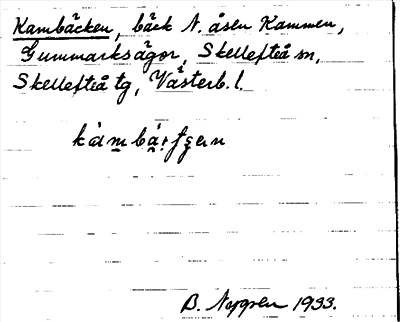 Kambäcken, bäck N. åsen Kammen,
Gummarksägor, Skellefteå sn,
Skellefteå tg, Västerb. l.
B. 1933.